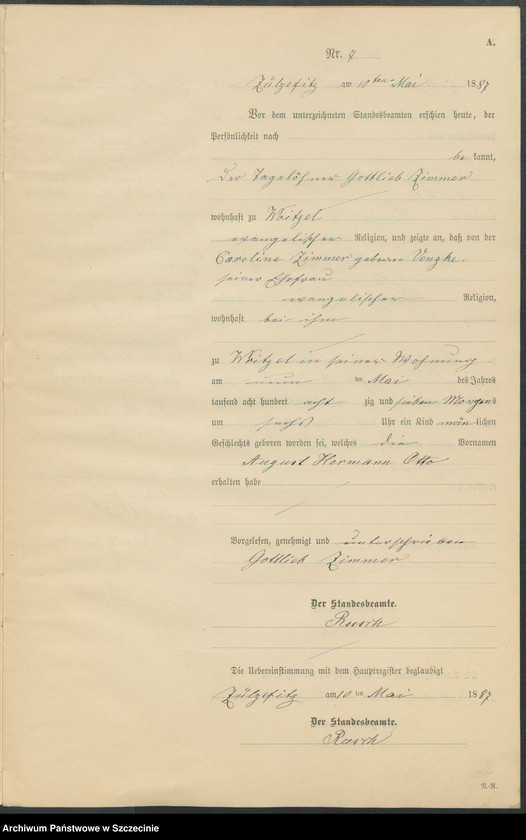 A.
Nr. 7
Zülzefitz am 10ten Mai 1887
Vor dem unterzeichneten Standesbeamten erschien heute, der
Persönlichkeit nach
be kannt,
der Tagelöhner Gottlieb Zimmer
wohnhaft zu Woitzel
evangelischer Religion, und zeigte an, daß von der
Caroline Zimmer geborene Venzke
seiner Ehefrau
evangelischer Religion,
wohnhaft bei ihm
zu Woitzel in seiner Wohnung
am neun ten Mai des Jahres
tausend acht hundert acht zig und sieben Morgens
um sechs Uhr ein Kind männ lichen
Geschlechts geboren worden sei, welches die Vornamen
August Hermann Otto
erhalten habe
Vorgelesen, genehmigt und unterschrieben
Gottlieb Zimmer
Der Standesbeamte.
Rusch
Die Uebereinstimmung mit dem Hauptregister beglaubigt
Zülzefitz am 10 ten Mai 1887
Der Standesbeamte.
Rusch
N.-R.
Archiwum Państwowe w Szczecinie